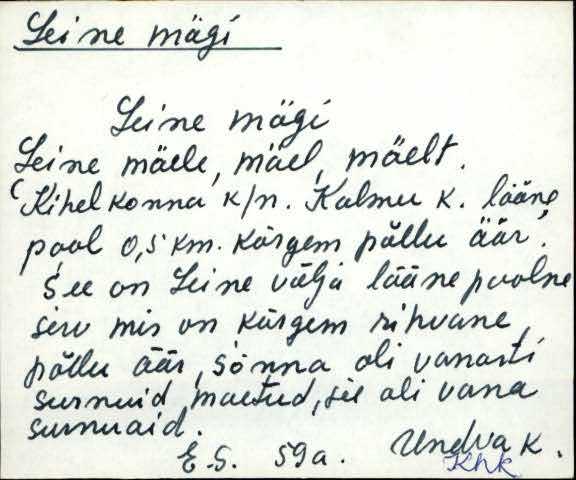 Leine mägi
Leine mägi
Leine mäele, mäel, mäelt.
Kihelkonna k/n. Kalmu k. lääne
pool 0,5 km. kõrgem põllu äär.
See on Leine välja lääne poolne
serv mis on kõrgem rihvane
põllu äär, sõnna oli vanasti
surnuid maetud, see oli vana
surnuaid.
E.S. 59a. Undva k.
Khk